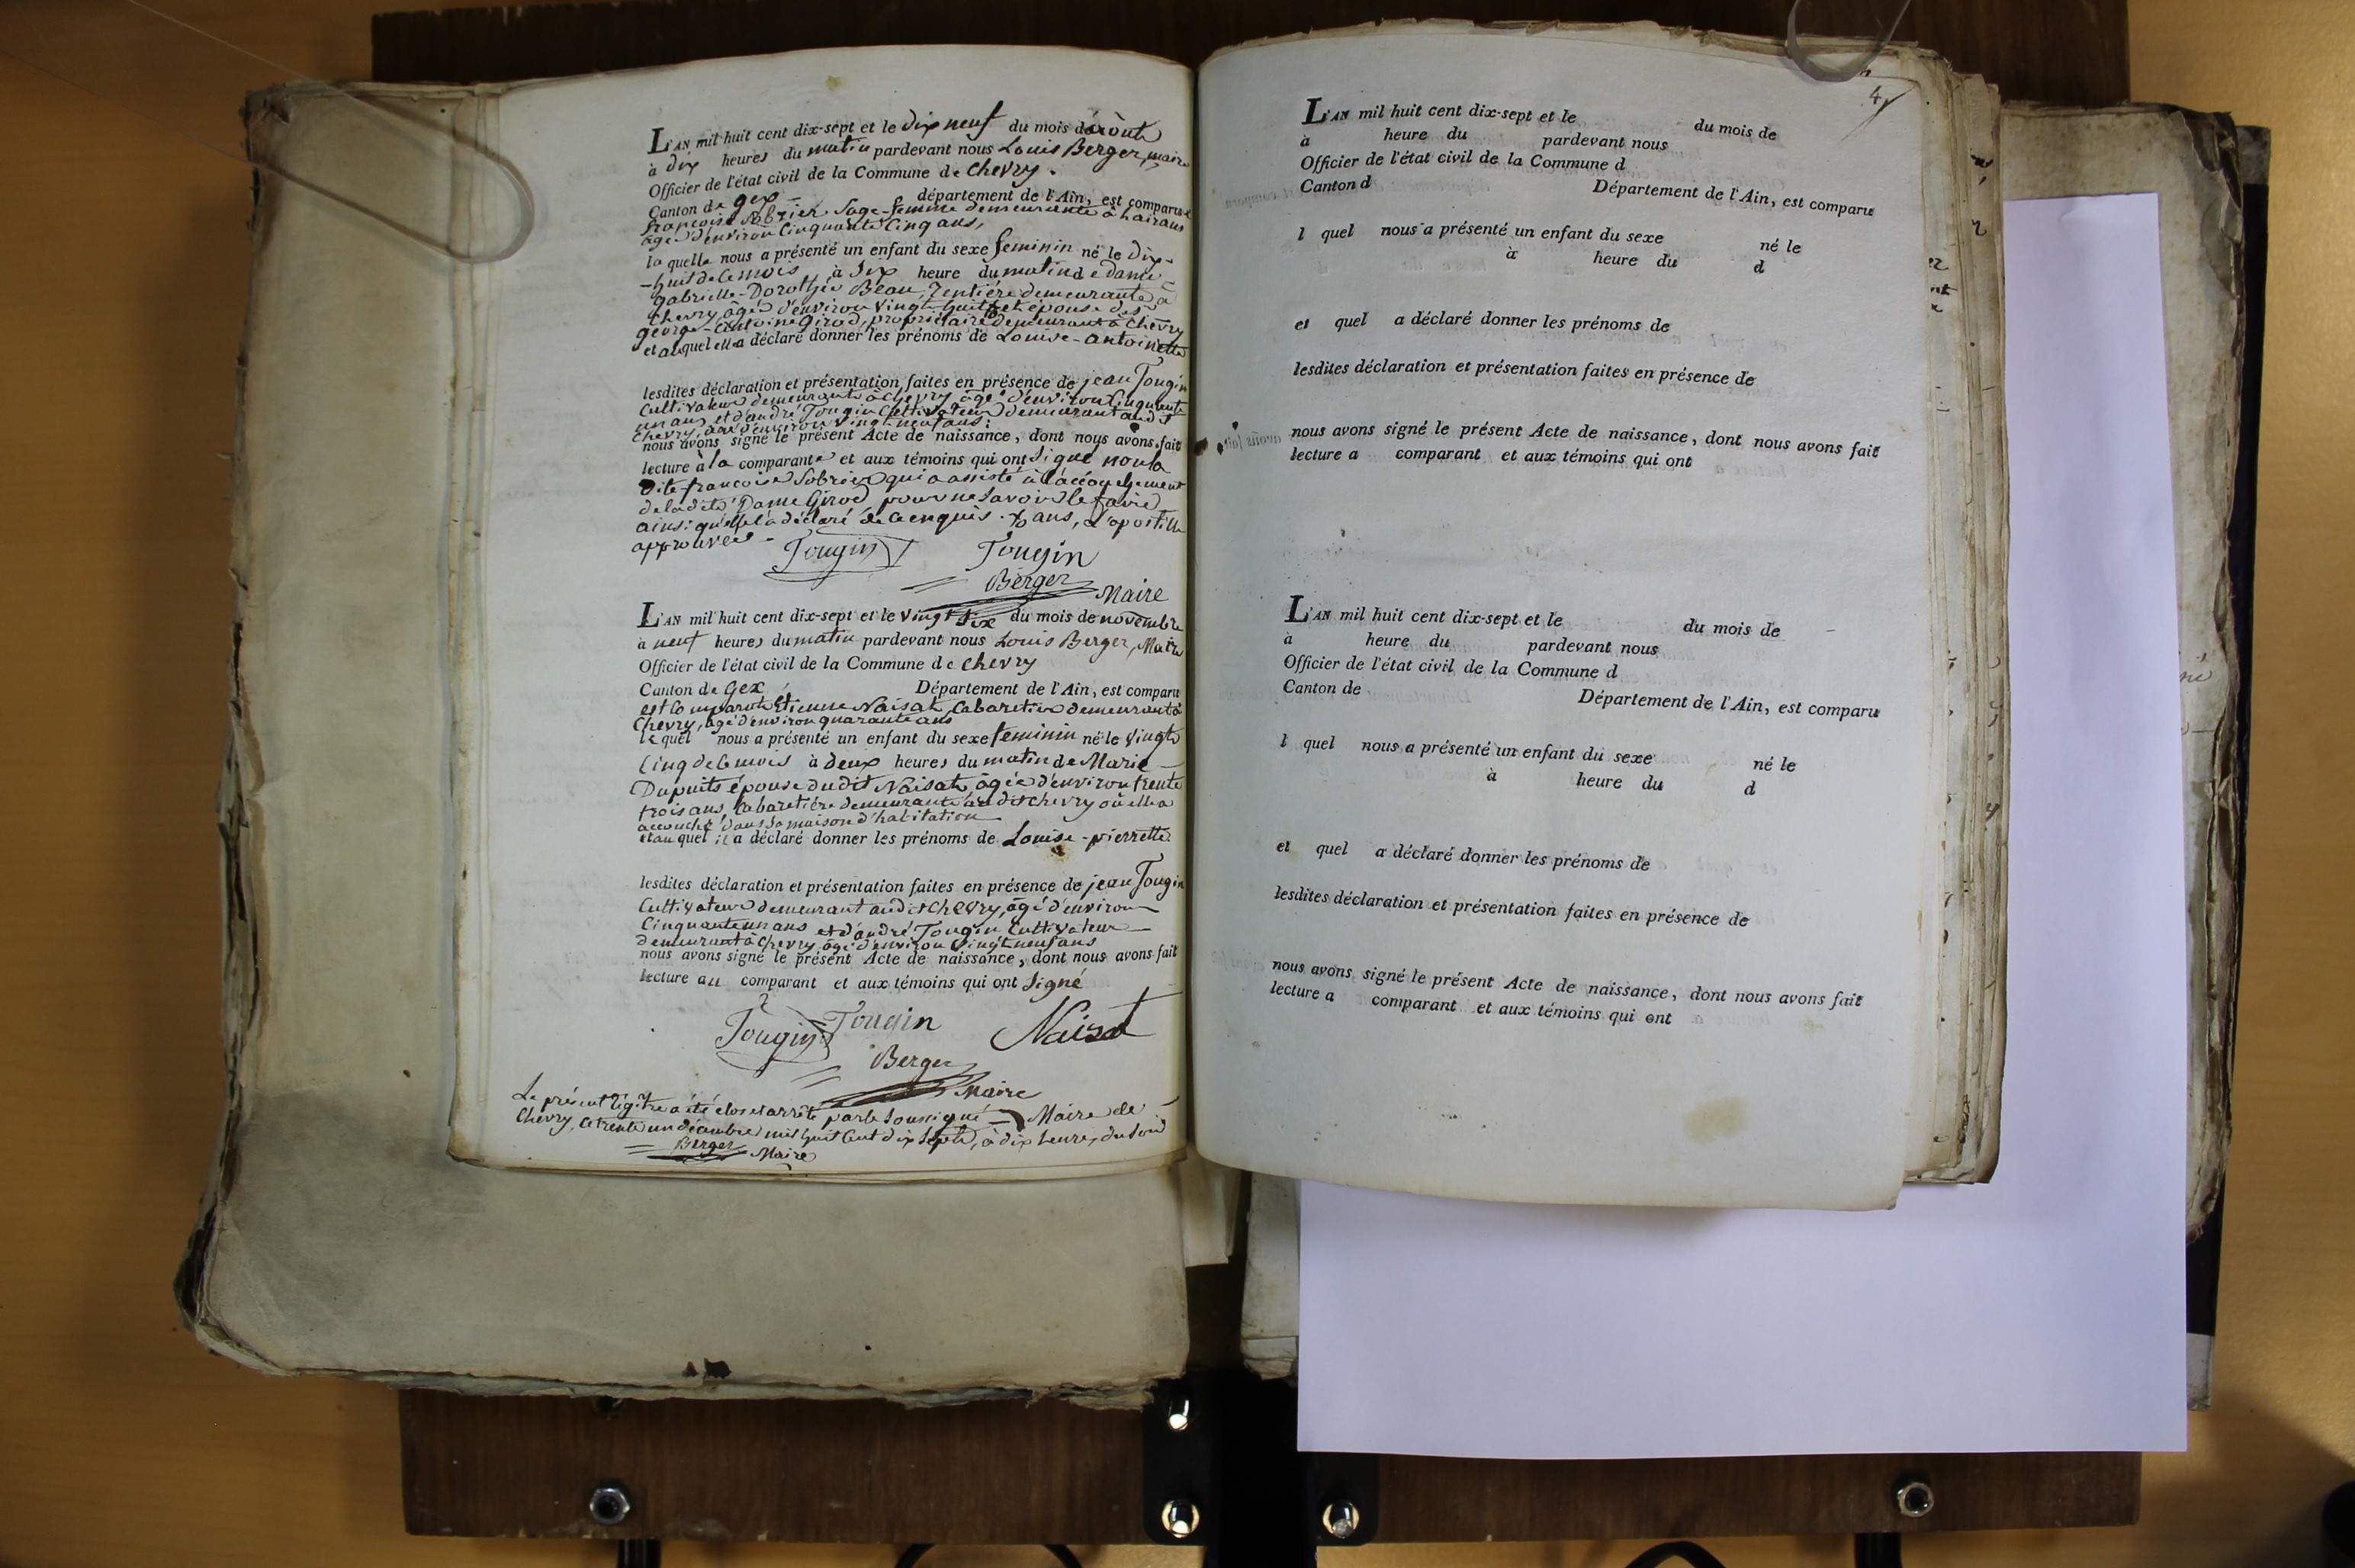 L'AN mil huit cent dix-sept et le dix neuf du mois d'aôout
à dix heures du matin pardevant nous Louis Berger, maire
Officier de l'état civil de la Commune de Chevry.
Canton de gex département de l'Ain, est comparue
françoise Sobrier Sage-femme demeurante à
âgée d'environ Cinquante Cinq ans,
la quelle nous a présenté un enfant du sexe feminin né le dix-
-huit de ce mois à six heure du matin de dame
gabrielle-Dorothée Béau, Rentière demeurante à
Chevry, âgée d'environ vingt-huit et épouse de
george-Antoine Girod, propriétaire demeurant à Chevry
et auquel elle a déclaré donner les prénoms de Louise-antoinette
lesdites déclaration et présentation faites en présence de jean Tougin
Cultivateur demeurant à Chevry âgé d'environ Cinquante
un ans, et d'andré Tougin Cultivateur demeurant audit
Chevry, âgé d'environ vingt-neuf ans;
nous avons signé le présent Acte de naissance, dont nous avons fait
lecture à la comparante et aux témoins qui ont signé non la
dite françoise Sobrier qui a assisté à l'accouchement
de la dite Dame Girod pour ne savoir le faire
ainsi qu'elle l'a déclaré de ce enquis. ans, L'apostille
approuvée -
Tougin Tougin
Berger Maire
L'AN mil huit cent dix-sept et le vingt six du mois de novembre
à neuf heures du matin pardevant nous Louis Berger, Maire
Officier de l'état civil de la Commune de Chevry
Canton de Gex Département de l'Ain, est comparu
est Comparut Etienne Naisat, Cabaretier demeurant à
Chevry, âgé d'environ quarante ans
le quel nous a présenté un enfant du sexe feminin né le vingt
Cinq de ce mois à deux heures du matin de Marie
Dupuits épouse du dit Naisat, âgée d'environ trente
trois ans, Cabaretière demeurante au dit Chevry où elle a
accouché dans sa maison d'habitation
et auquel il a déclaré donner les prénoms de Louise-pierrette
lesdites déclaration et présentation faites en présence de jean Tougin
Cultivateur demeurant audit Chevry, âgé d'environ
Cinquante un ans et d'andré Tougin Cultivateur
demeurant à Chevry âgé d'environ vingt neuf ans
nous avons signé le présent Acte de naissance, dont nous avons fait
lecture au comparant et aux témoins qui ont signé
Tougin Tougin Naisat
Berger
Maire
Le présent régitre a été clos et arrêté par le Soussigné Maire de
Chevry, ce trente un décembre mil huit Cent dix Sept, à dix heures du Soir
Berger Maire
4
L'AN mil huit cent dix-sept et le du mois de
à heure du pardevant nous
Officier de l'état civil de la Commune d
Canton d Département de l'Ain, est comparu
l quel nous a présenté un enfant du sexe né le
à heure du d
et quel a déclaré donner les prénoms de
lesdites déclaration et présentation faites en présence de
nous avons signé le présent Acte de naissance, dont nous avons fait
lecture a comparant et aux témoins qui ont
L'AN mil huit cent dix-sept et le du mois de
à heure du pardevant nous
Officier de l'état civil de la Commune d
Canton de Département de l'Ain, est comparu
l quel nous a présenté un enfant du sexe né le
à heure du d
et quel a déclaré donner les prénoms de
lesdites déclaration et présentation faites en présence de
nous avons signé le présent Acte de naissance, dont nous avons fait
lecture a comparant et aux témoins qui ont